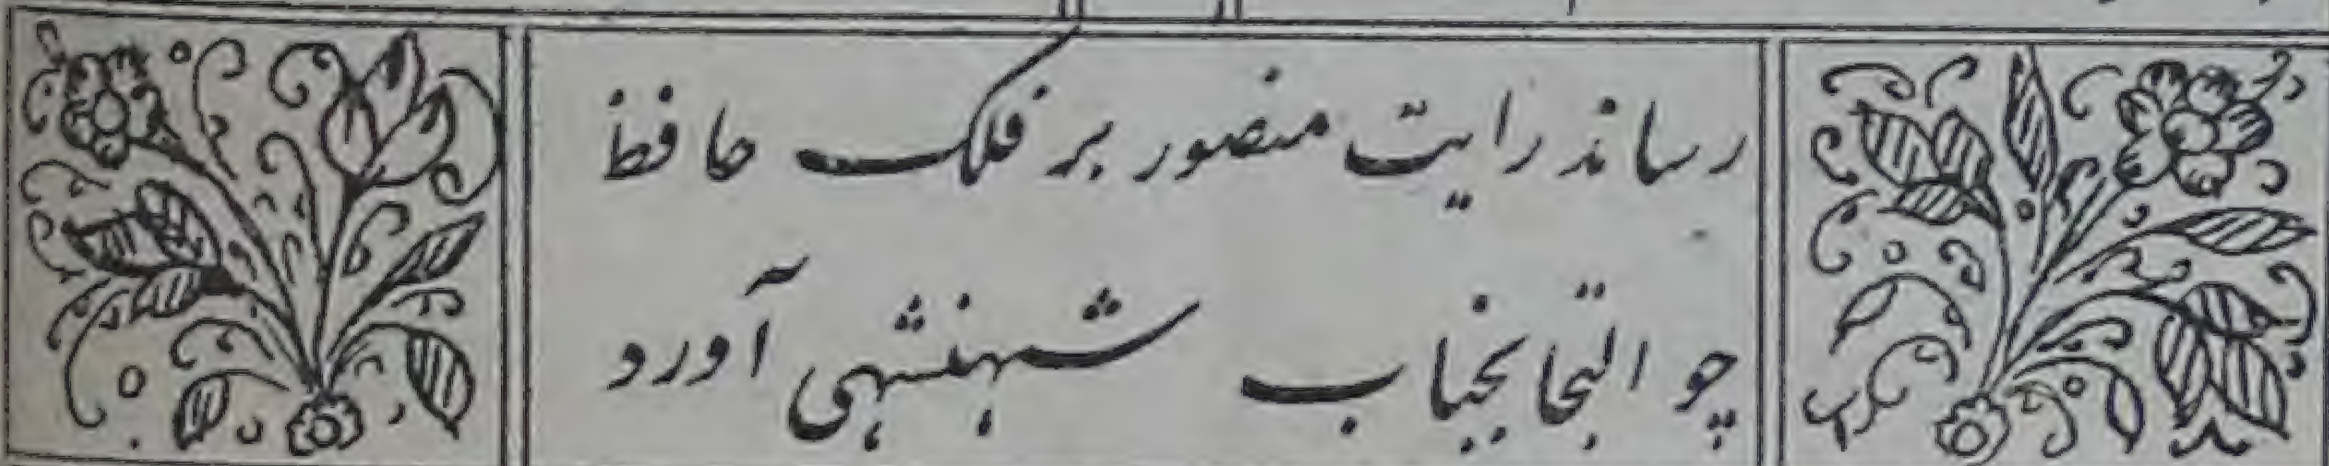 رساند رایت منصور بر فلک حافظ
چو التجا بجناب شهنشهی آورد